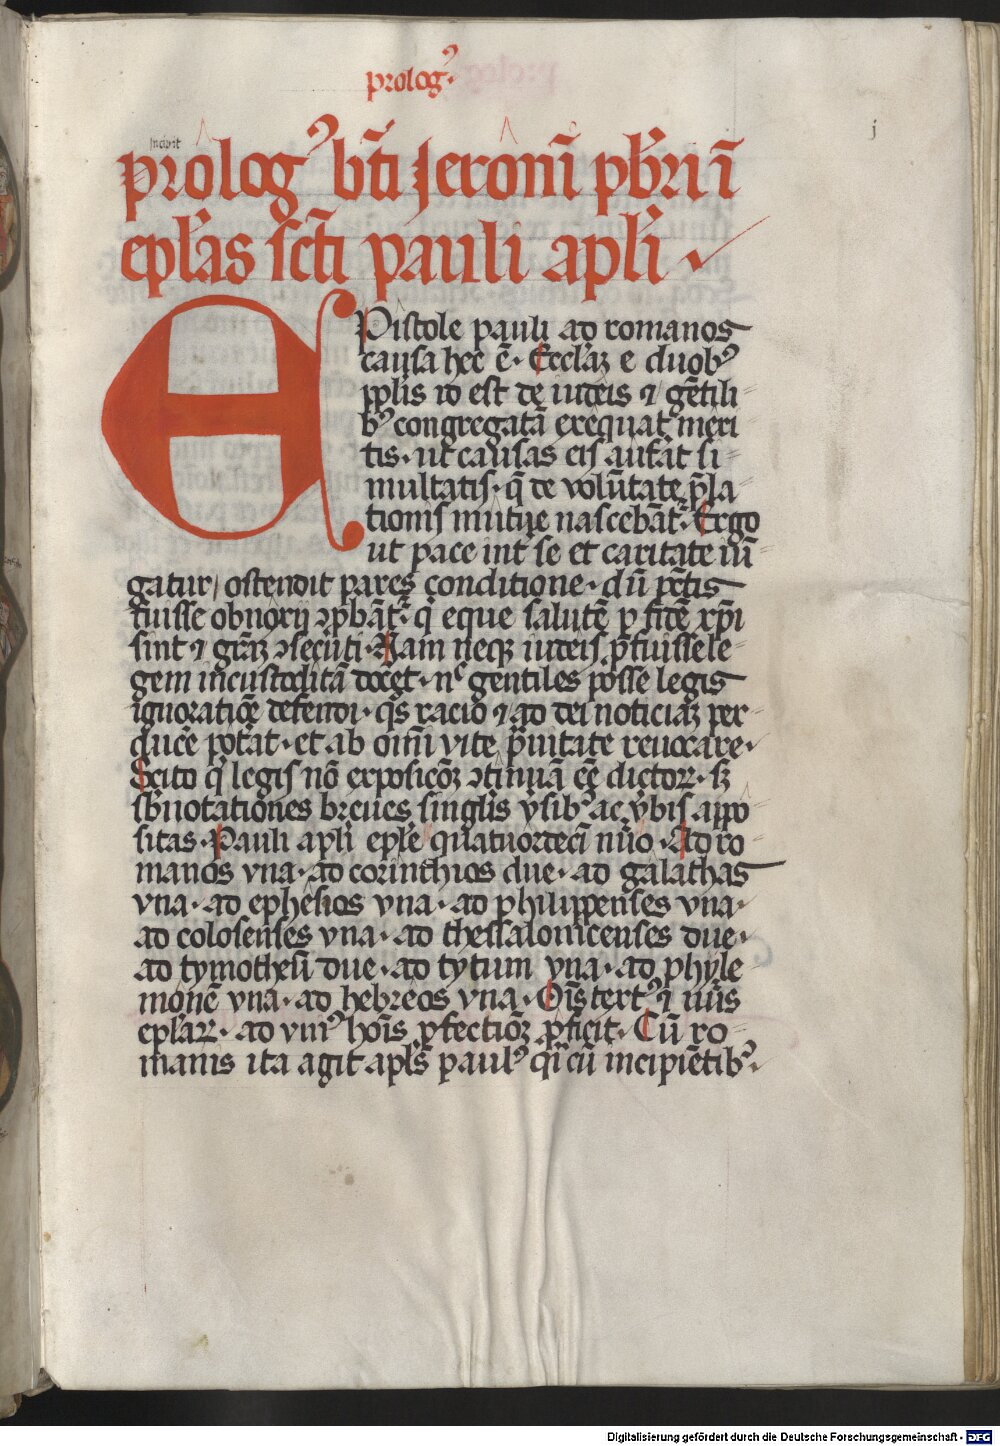 prologꝰ
j
incipit
prologꝰ bt̄i Jeronī pb̄ri ī
ep̄las sct̄i pauli apl̄i
EPistole pauli ad romanos
causa hec ē. Eccl̄aꝫ e duobꝰ
ppl̄is id est de iudeis ⁊ gēntili
bꝰ congregatā exequat meri
tis. ut causas eis aufāt si
multatis. q̄ de volūtate p̄la
tionis mutue nascebāt᷑. Ergo
ut pace int̄ se et caritate iū
gatur / ostendit pares conditione. dū pc̄tis
fuisse obnoxij ꝯpbāt᷑. q̄ eque salutē ꝑ fidē xp̄i
sint ⁊ gr̄aꝫ ꝯsecuti. Nam neqꝫ iudeis p̄fuisse le
gem incustoditā docet. nᶜ gentiles posse legis
ignoratiōe defendi. qs̄ racio ⁊ ad dei noticiaꝫ per
ducē̄ potāt. et ab om̄i vite p̄uitate reuocare.
Scito q̄ legis nō exposicōꝫ ꝯtinuā eē dictoꝝ. sꝫ
sb̄notationes breues singl̄is v̄sibꝰ ac v̄bis appo
sitas. Pauli apl̄i ep̄le quatuordecī nūo. Ad ro
manos vna. ad corinthios due. ad galathas
vna. ad ephesios vna. ad philippenses vna.
ad colosenses vna. ad thessalonicenses due.
ad tymotheū due. ad tytum vna. ad phyle
monē vna. ad hebreos vna. Oīs textꝰ ⁊ nūs
ep̄laꝝ. ad vniꝰ hoīs ꝑfectiōꝫ ꝓficit. Cū ro
manis ita agit apl̄s paulꝰ qͣi cū incipiētibꝰ.
Digitalisierung gefördert durch die Deutsche Forschungsgemeinschaft - DFG